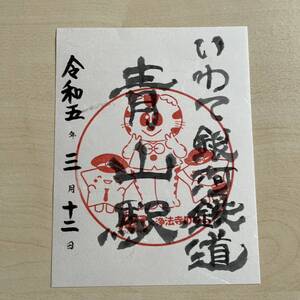 いわて銀河鉄道
青山駅
令和五年 三月 十二日
浄法寺